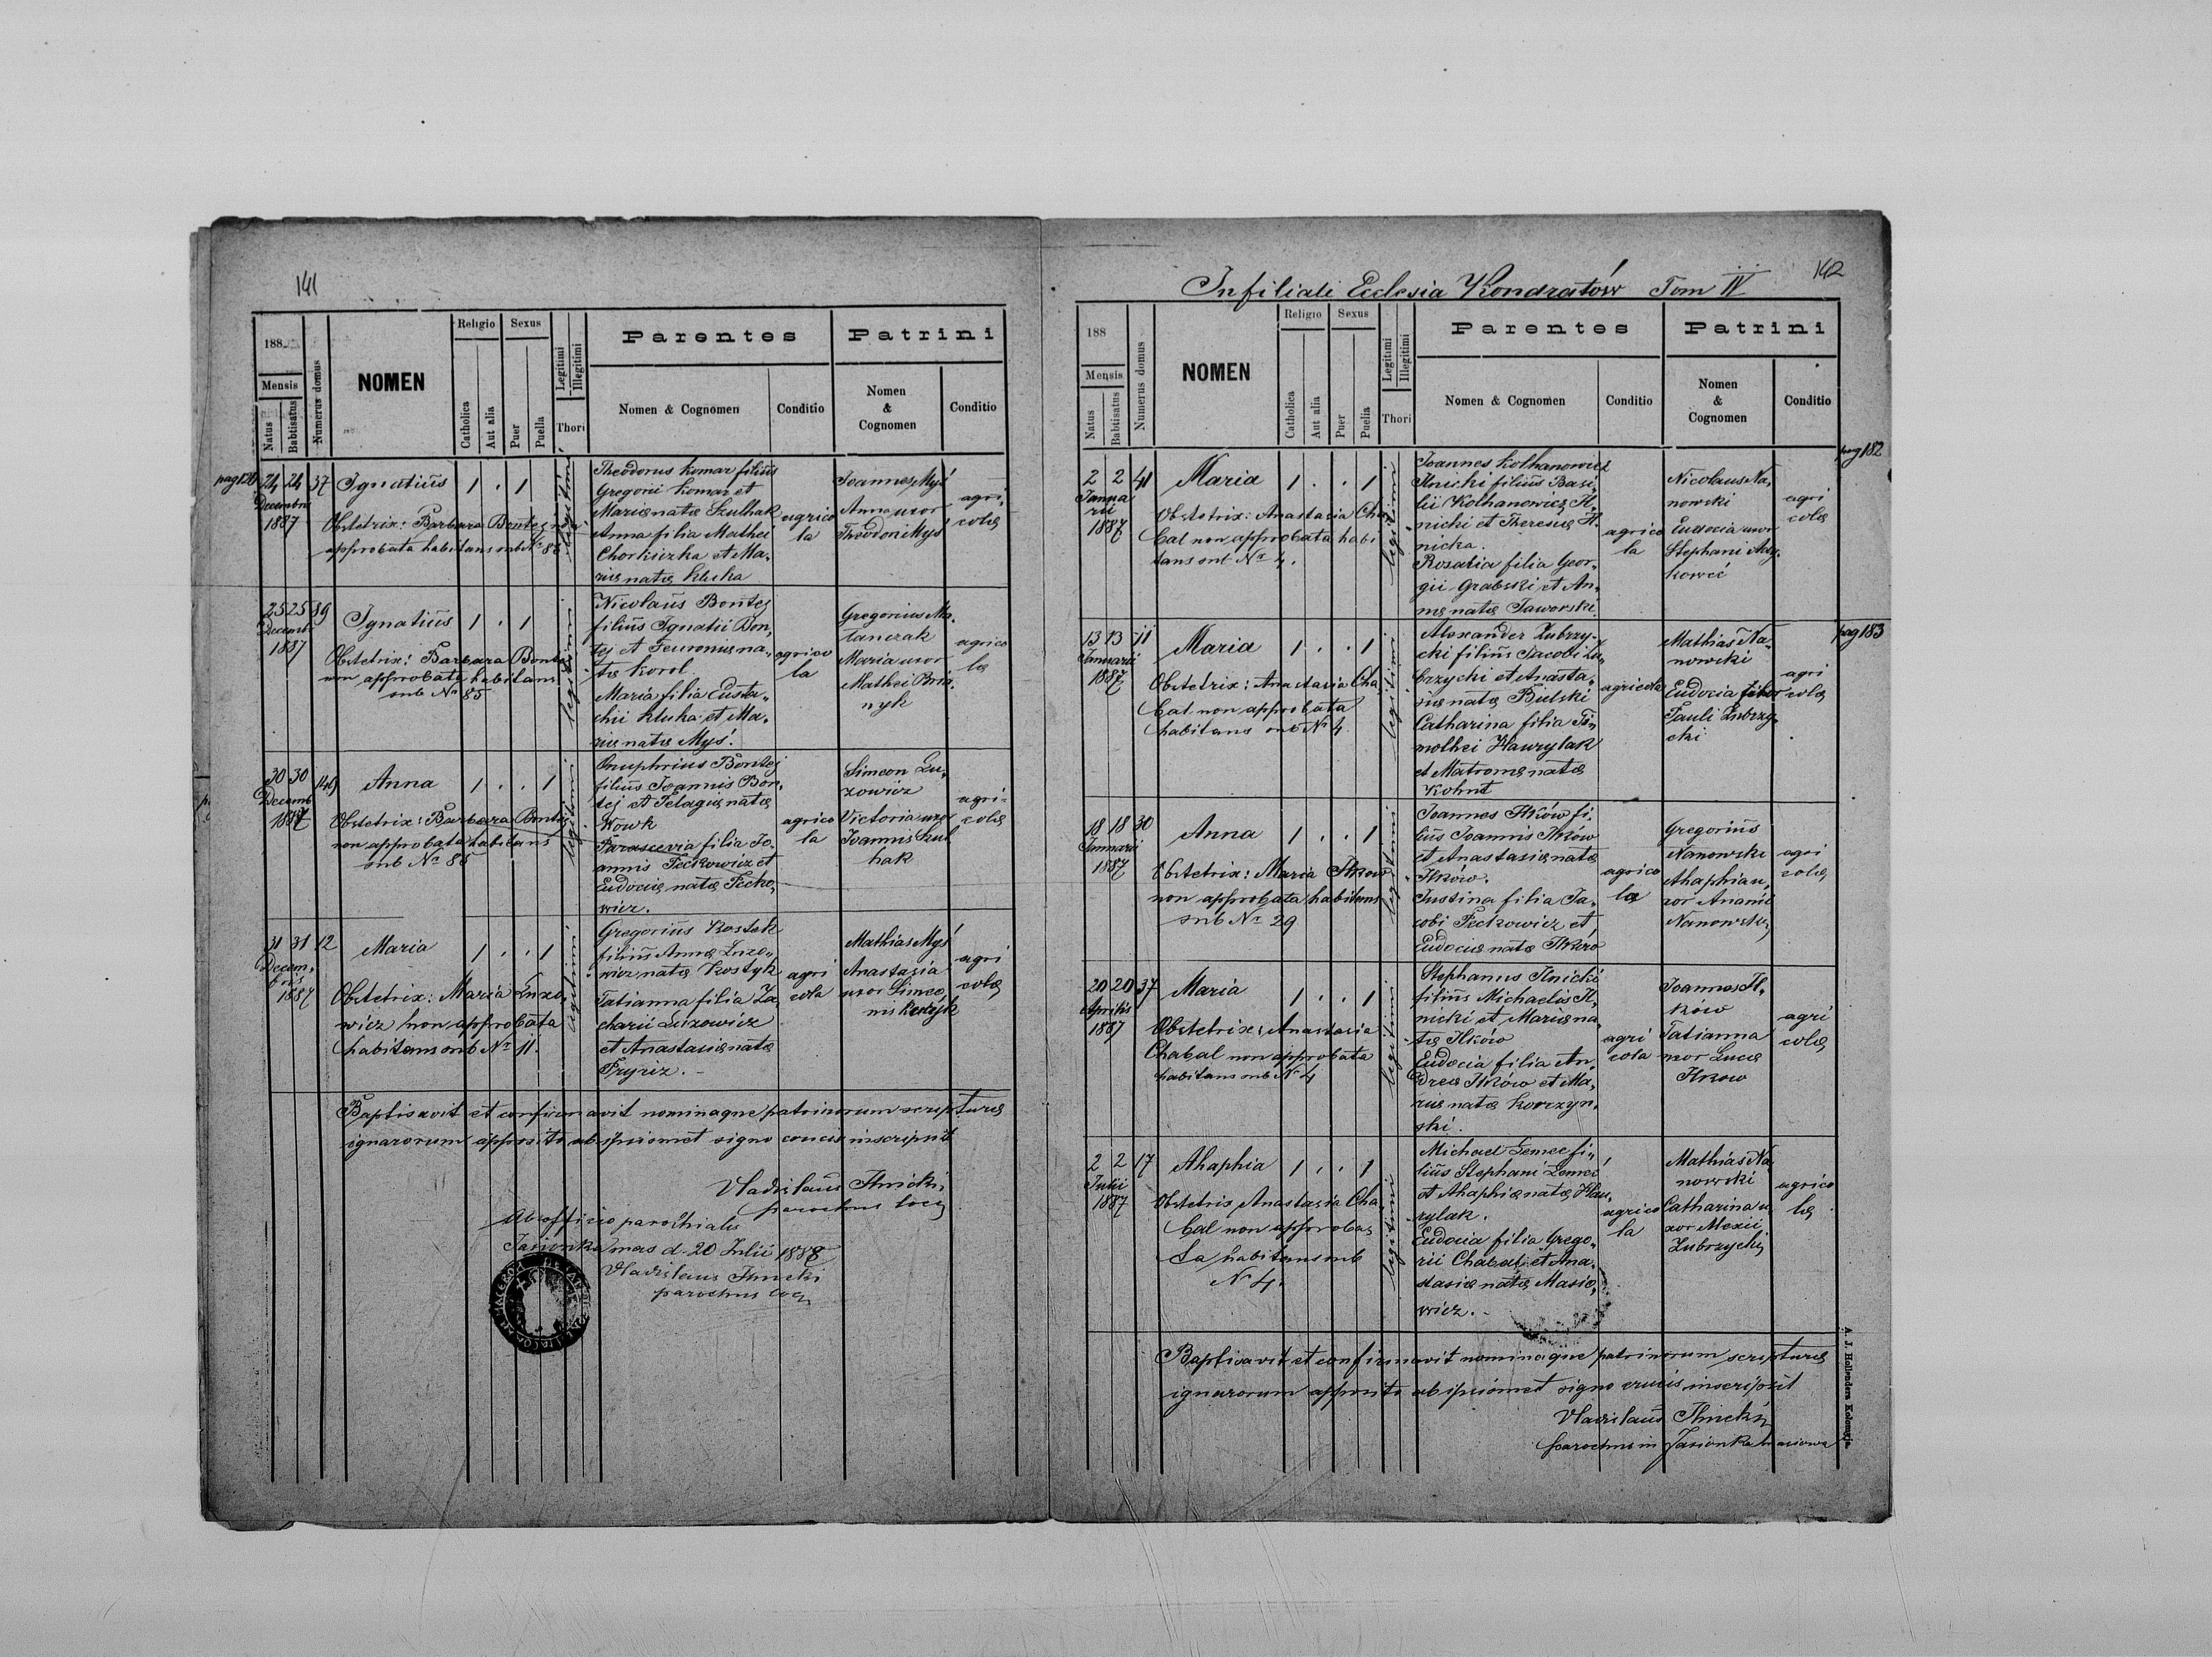 141
188
Religio
Sexus
Legitimi
Illegitimi
Parentes
Patrini
Mensis
Natus
Babtisatus
Numerus domus
NOMEN
Catholica
Aut alia
Puer
Puella
Thori
Nomen & Cognomen
Conditio
Nomen
&
Cognomen
Conditio
24 24 37 Ignatius 1 . 1
Decembris
1887
Obstetrix: Barbara Bontej non
approbata habitans sub No 85
legitimi
Theodorus Komar filius
Gregorii Komar et
Mariae natae Szulhak
Anna filia Mathei
Chorkiczka et Ma,
riae natae Kluka
agrico
la
Joannes Myś
Anna uxor
Theodori Myś
agri,
colae
25 25 89 Ignatius 1 . 1
Decembr
1887
Obstetrix: Barbara Bontej
non approbata habitans
sub No 85
legitimi
Nicolaus Bontej
filius Ignatii Bon,
tej et Feuroniae na,
tae Korol
Maria filia Eusta,
chii Kluka et Ma,
riae natae Myś.
agrico
la
Gregorius Ma,
Maria uxor
Mathei Bria,
nyk
agrico
lae
30 30 Anna 1 . . 1
Decemb
1887
Obstetrix: Barbara Bontej
non approbata habitans
sub No 85
legitimi
Onuphrius Bontej
filius Joannis Bon,
tej et Pelagiae natae
Wowk
Parascevia filia Jo,
annis Feckowicz et
Eudociae natae Fecko,
wicz.
agrico
la
Simeon Lu,
zowicz
Victoria uxor
Joannis Szul
hak
agri=
colae
31 31 12 Maria 1 . . 1
Decem,
bris
1887
Obstetrix: Maria Luzo,
wicz non approbata
habitans sub No 11.
legitimi
Gregorius Kostek
filius Annae Luzo,
wicz natae Kostyk
Tatianna filia Za,
charii Luzowicz
et Anastasiae natae
agri
cola
Mathias Myś
Anastasia
uxor Simeo,
nis Kostyk
agri
colae
Baptisavit et confirmavit nominaque patrinorum scripturae
ignarorum apposito ab ipsismet signo crucis inscripsit
Vladislaus Ilnicki,
parochus loci
Ab officio parochiali
Jasionka mas d. 20 Julii 1888
Vladislaus Ilnicki
parochus loci
In filiali Ecclesia Kondratów Tom IV
142
188
Religio
Sexus
Legitimi
Illegitimi
Parentes
Patrini
Mensis
Natus
Babtisatus
Numerus domus
NOMEN
Catholica
Aut alia
Puer
Puella
Thori
Nomen & Cognomen
Conditio
Nomen
&
Cognomen
Conditio
pag 182
2 2 41 Maria 1 . . 1
Janua
rii
1887
Obstetrix: Anastasia Cha,
bal non approbata habi
tans sub No 4.
legitimi
Joannes Kolhanowicz
Ilnicki filius Basi,
lii Kolhanowicz Il,
nicki et Theresiae Il,
nicka.
Rosalia filia Geor,
gii Grabski et An,
nae natae Jaworski
agrico
la
Nicolaus Na,
nowski
Eudocia uxor
Stephani
agri
colae
pag 183
13 13 11 Maria 1 . . 1
Januarii
1887
Obstetrix: Anastasia Cha,
bal non approbata
habitans sub No 4
legitimi
Alexander Zubrzy,
cki filius Jacobi Zu,
brzycki et Anasta,
siae natae Bielski
Catharina filia Ti,
mothei Hawrylak
et Matronae natae
Kohut
agricola
Mathias Na,
nowski
Eudocia
Pauli Zubrzy,
cki
agri
colae
18 18 30 Anna 1 . . 1
Januarii
1887
Obstetrix: Maria Ilków
non approbata habitans
sub No 29
legitimi
Joannes Ilków fi,
lius Joannis Ilków
et Anastasiae natae
Ilków.
Justina filia Ja,
cobi Feckowicz et
Eudociae natae Ilków
agrico
la
Gregorius
Nanowski
Ahaphia u,
xor Ananii
Nanowski
agri
colae
20 20 37 Maria 1 . . 1
Aprilis
1887
Obstetrix: Anastasia
Chabal non approbata
habitans sub No 4
legitimi
Stephanus Ilnicki
filius Michaelis Il,
nicki et Mariae na,
tae Ilków
Eudocia filia An,
dreae Ilków et Ma,
riae natae Korczyn,
ski.
agri
cola
Joannes Il,
ków
Tatianna
uxor Lucae
Ilkow
agri
colae
2 2 17 Ahaphia 1 . . 1
Julii
1887
Obstetrix Anastasia Cha,
bal non approba,
ta habitans sub
No 4.
legitimi
Michael Lemec fi,
lius Stephani Lemec
et Ahaphiae natae Haw,
rylak.
Eudocia filia Grego,
rii Chabal et Ana,
stasiae natae Masio,
wicz.
agrico
la
Mathias Na
nowski
Catharina u,
xor Alexii
Zubrzycki
agrico
lae
Baptisavit et confirmavit nominaque patrinorum scripturae
ignarorum apposito ab ipsismet signo crucis inscripsit
Vladislaus Ilnicki
parochus in Jasionka masiowa